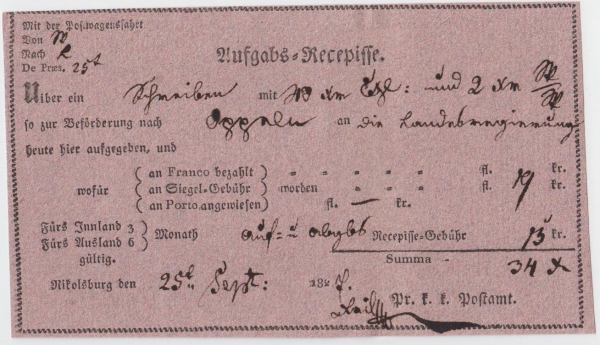 Mit der Postwagensfahrt
Von W
Nach R
De Præs. 25t
Aufgabs-Recepisse.
Uiber ein Schreiben mit und 2
so zur Beförderung nach Oppeln an die Landesregierung
heute hier aufgegeben, und
wofür
(an Franco bezahlt) fl. kr.
(an Siegel-Gebühr) worden fl. 19 kr.
(an Porto angewiesen) fl. — kr.
Fürs Innland 3
Fürs Ausland 6
Monath
gültig.
auf- u abgbs Recepisse-Gebühr 15 kr.
Summa - 34 x
Nikolsburg den 25t Sept: 18
Pr. k. k. Postamt.